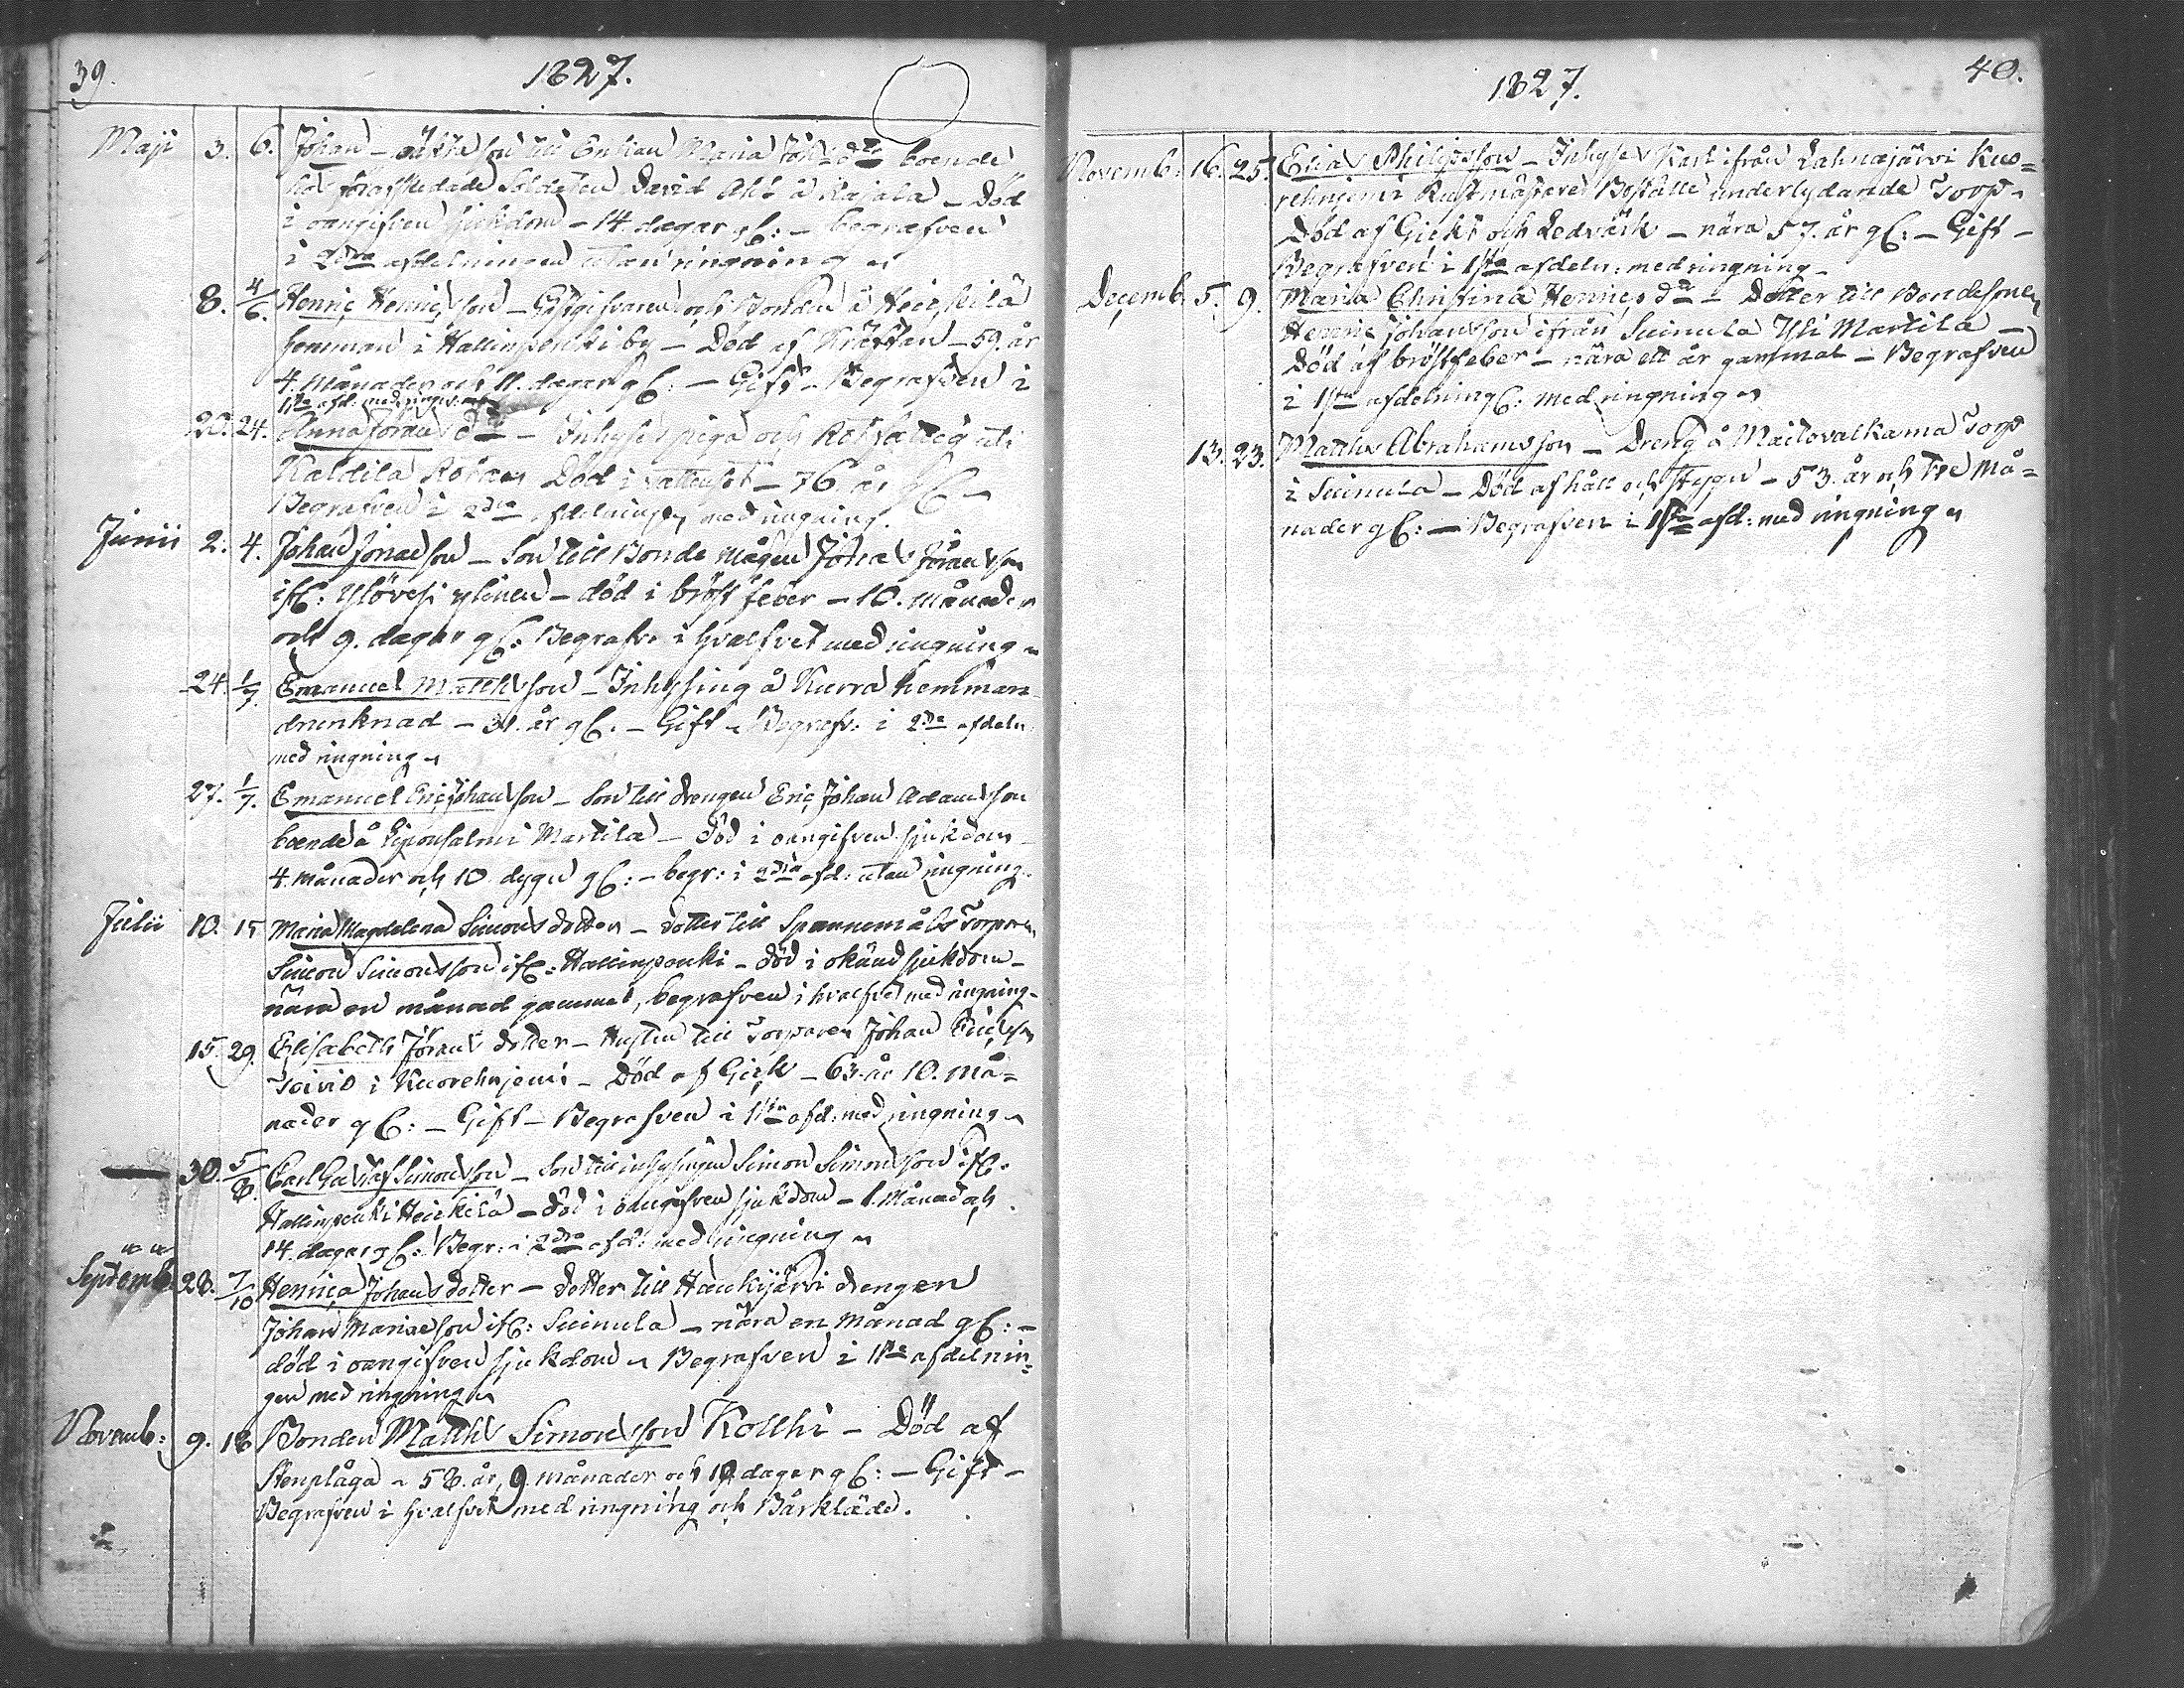 39.
1827.
Maji 3. 6. Johan - oäkta son till Enkan Maria Joh: dtr boende
hos förafskedade Soldaten David Ahl å Rajala - Död
i oangifven sjukdom - 14 dagar gl: - begrafven
i 2dra afdelningen utan ringning
8. 4/6. Henric Henricsson - Gästgifvaren och Bonden å Heickilä
hemman i Hallinpenki by - Död af Kräftan - 59. år
4. månader och 11. dagar gl: - Gift - Begrafven i
1sta afd: med ringn:
20. 24. Anna Jörans dtr - Inhyses piga och Rotfattig uti
Kaldila Rotan Död i vattusot - 76 år gl -
Begrafven i 2dra afdelningen med ringning.
Junii 2. 4. Johan Jonasson - Son till Bonde mågen Jonas Jöransson
ifl: Ylövesi ylinen - död i bröstfeber - 10. månader
och 9. dagar gl: Begrafv: i hvalfvet med ringning
24. 1/7. Emanuel Mattsson - Inhysing å Kurra hemman
drunknad - 31. år gl. - Gift - Begrafv: i 2dra afdeln
med ringning
27. 1/7. Emanuel Ericjohansson - Son till drengen Eric Johan Adamsson
boende å Martila - död i oangifven sjukdom
4. månader och 10 dygn gl: - begr: i 2dra afd: utan ringning.
Julii 10. 15 Maria Magdalena Simonsdotter - dotter till Spannemåls Torparen
Simon Simonsson ifl: Hallinpenki - död i okänd sjukdom -
nära en månad gammal, begrafven i hvalfvet med ringning -
15. 29. Elisabeth Jörans dotter - Hustru till Torparen Johan Ericsson
Toivio i Kuorehnjemi - Död af Gickt - 63. år 10. må=
nader gl: - Gift - Begrafven i 1sta afd: med ringning
— 30. 5/8. Carl Gustaf Simonsson - Son till inhysingen Simon Simonsson ifl.
Hallinpenki Heickilä - död i oangifven sjukdom - 1. månad och
14. dagar gl: Begr: i 2dra afd: med ringning
Septemb. 28. 7/10 Henrica Johansdotter - dotter till Haukijärvi drengen
Johan Mariaeson ifl: Suinula - nära en månad gl: -
död i oangifven sjukdom Begrafven i 1sta afdelnin=
gen med ringning
Novemb: 9. 18 Bonden Matths Simonsson Kollhi - Död af
Stenplåga - 58. år, 9. månader och 19 dagar gl: - Gift -
Begrafven i hvalfvet med ringning och Bårkläde.
40.
1827.
Novemb: 16. 25. Elias Philipsson - Inhyses Karl ifrån Lahnajärvi Kuo=
rehnjemi Rustmästare Boställe underlydande Torp -
Död af Gickt och Ledvärk - nära 57. år gl: - Gift -
Begrafven i 1sta afdeln: med ringning -
Decemb. 5. 9. Maria Christina Henrics dtr - Dotter till Bondesonen
Henric Johansson ifrån Suinula Yli Martila -
Död af bröstfeber - nära ett år gammal - Begrafven
i 1sta afdelning: med ringning
13. 23. Matths Abrahamsson - Dreng å Maitovalkama Torp
i Suinula - Död af håll och styng - 53. år och tre må=
nader gl: - Begrafven i 1sta afd: med ringning